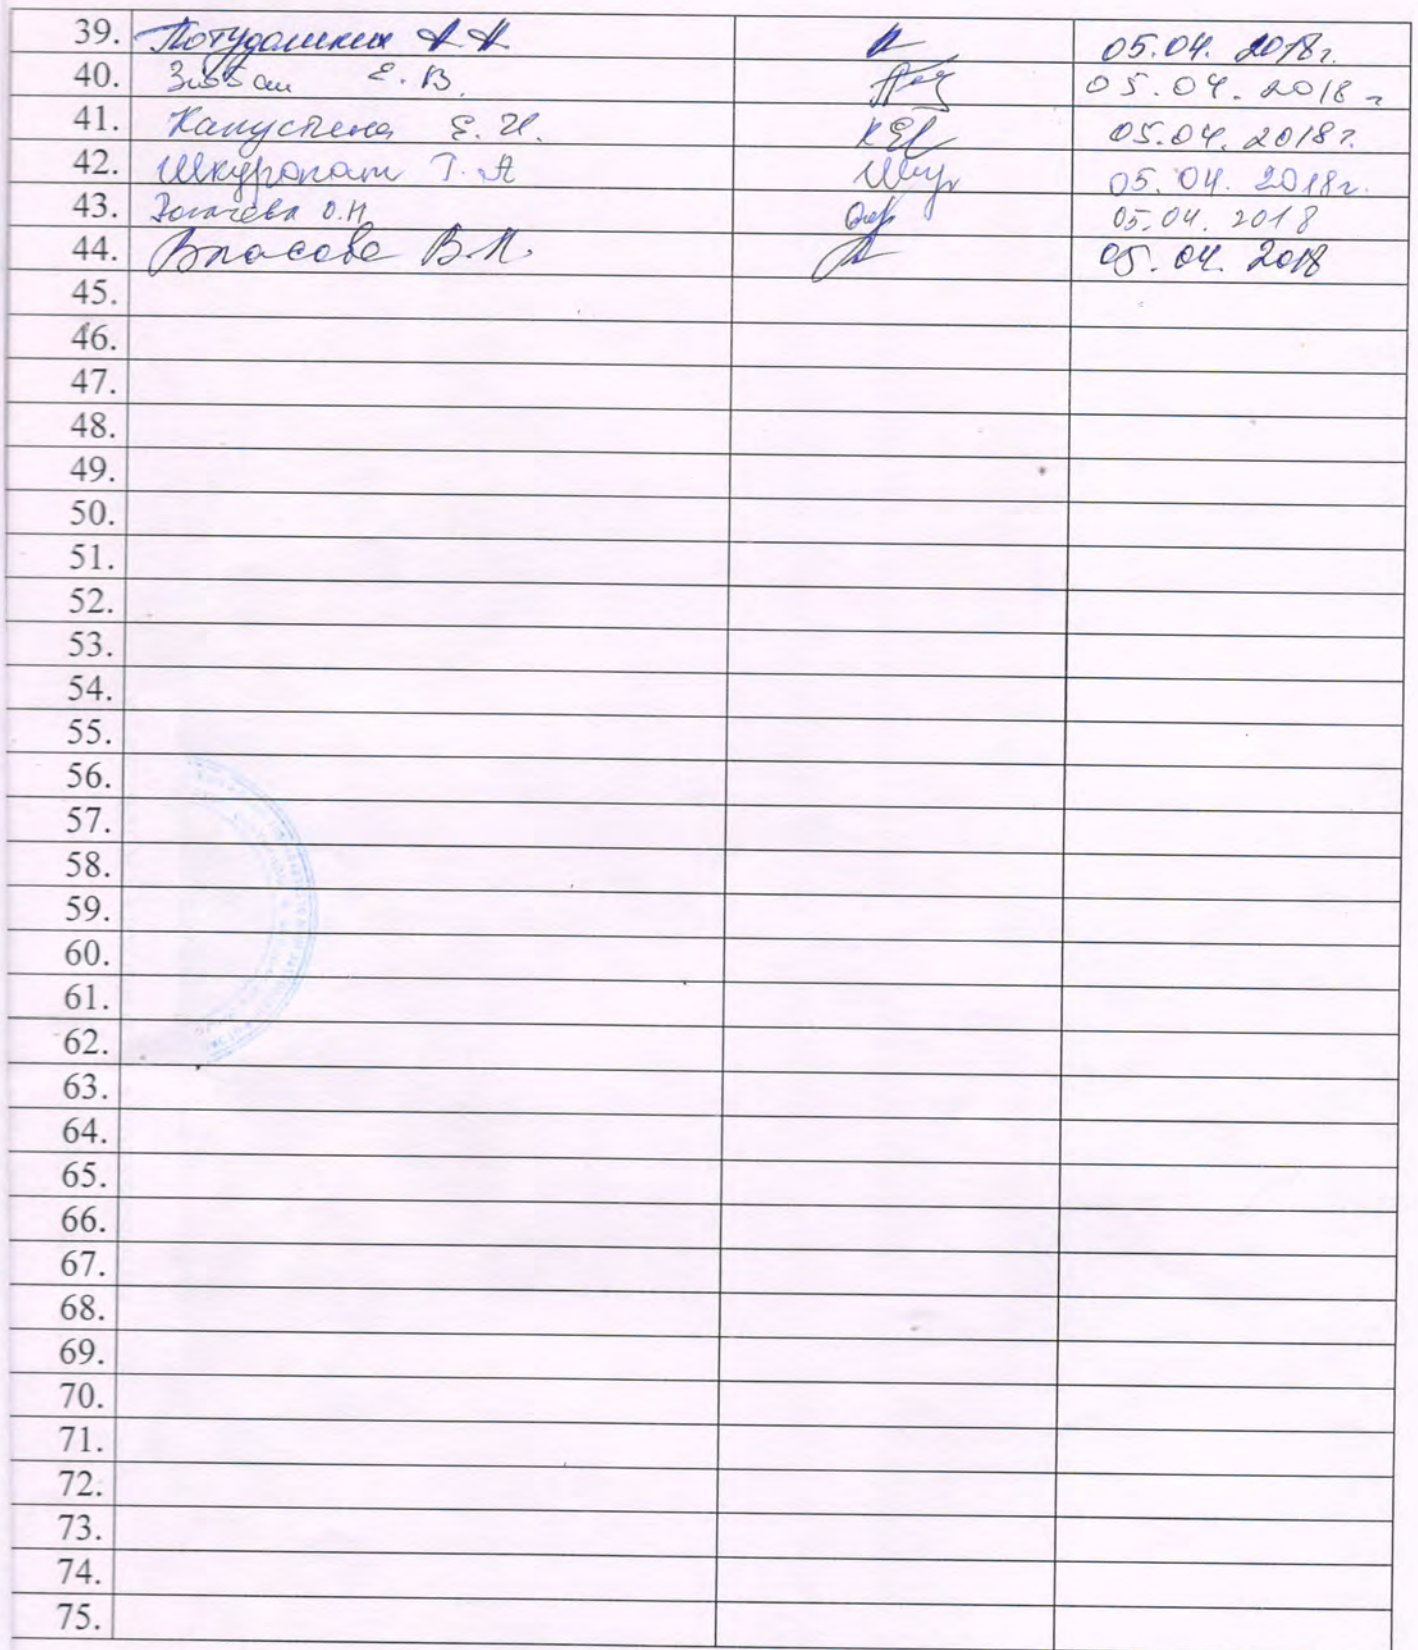 39. Потудашких А А 05.04. 2018г.
40. Е. В. 05.04. 2018г
41. Капустина Е. И. КЕИ 05.04. 2018г.
42. Шкуропат Т. А Шкур 05. 04. 2018г.
43. О.Н. 05.04. 2018
44. Власова В.П. 05. 04. 2018
45.
46.
47.
48.
49.
50.
51.
52.
53.
54.
55.
56.
57.
58.
59.
60.
61.
62.
63.
64.
65.
66.
67.
68.
69.
70.
71.
72.
73.
74.
75.